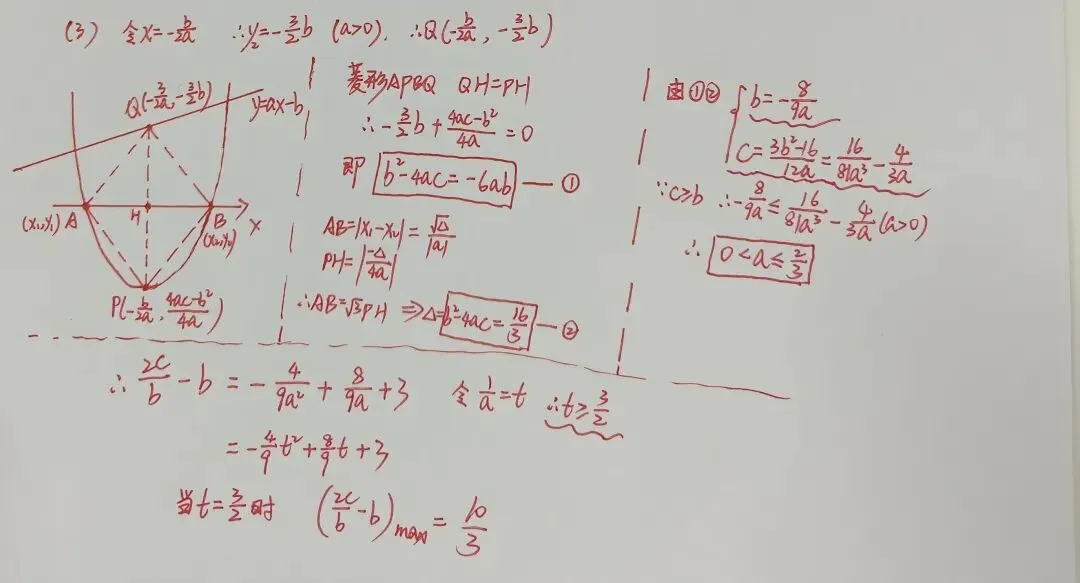 (3) 令x=-b/2a ∴y₂=-3/2b (a>0). ∴Q(-b/2a, -3/2b)
Q(-3/2a, -3/2b)
y=ax-b
A
H
B
x
(x₁,y₁)
(x₂,y₂)
P(-b/2a, (4ac-b²)/4a)
菱形APBQ QH=PH
∴-3/2b+(4ac-b²)/4a=0
即 b²-4ac=-6ab —①
AB=|x₁-x₂|=√Δ/|a|
PH=|-Δ/4a|
∴AB=√3PH ⇒Δ=b²-4ac=16/3 —②
由①② { b=-8/9a
c=(3b²-16)/12a=16/81a³-4/3a
∵c≥b ∴-8/9a≤16/81a³-4/3a(a>0)
∴ 0<a≤2/3
∴ 2c/b-b=-4/9a²+8/9a+3 令1/a=t ∴t≥3/2
=-4/9t²+8/9t+3
当t=3/2时 (2c/b-b)max=10/3